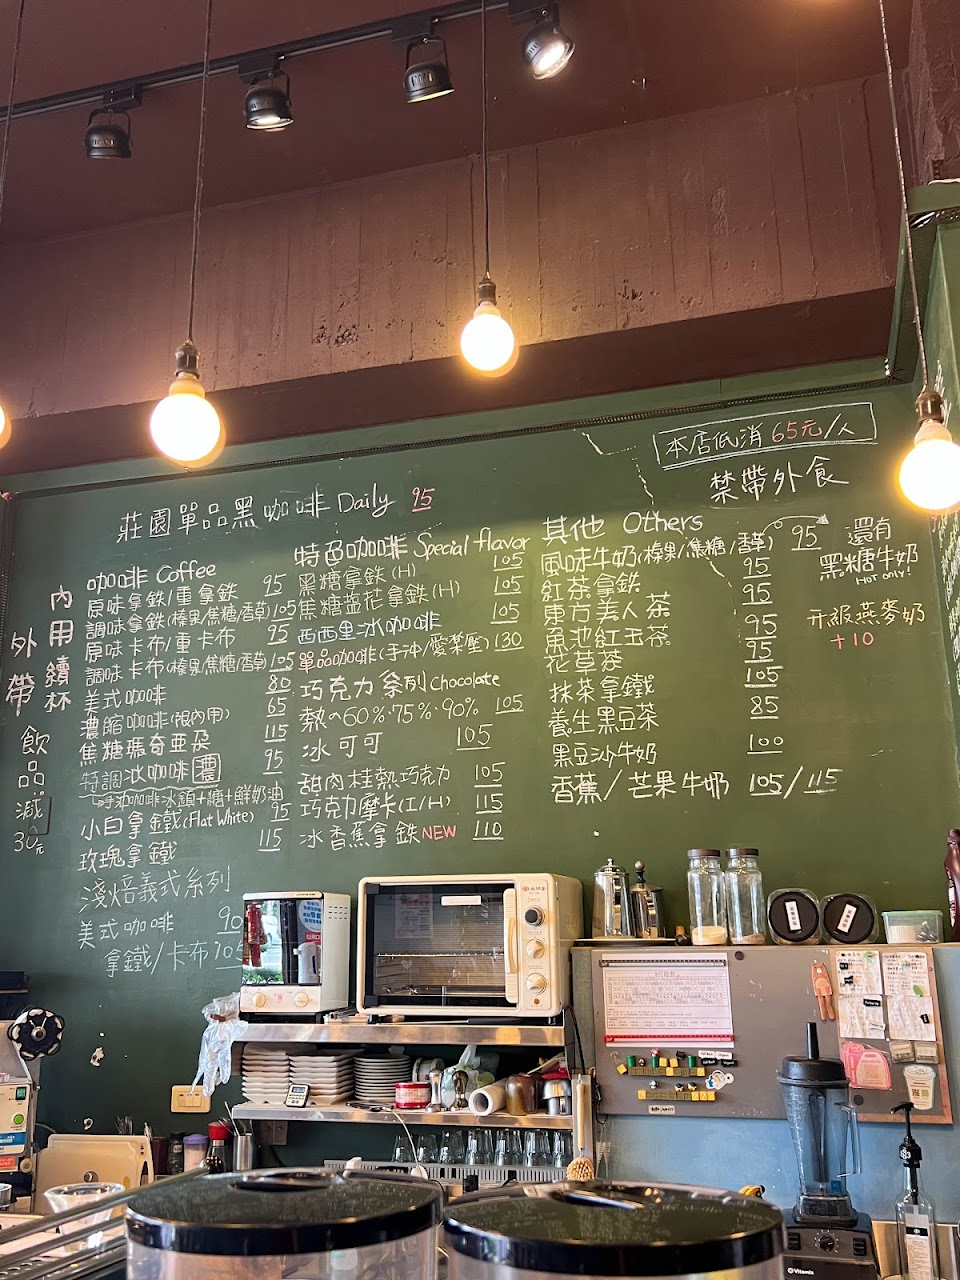 本店低消65元/人
禁帶外食
莊園單品黑咖啡 Daily 95
內用續杯
外帶飲品減30元
咖啡 Coffee
原味拿鐵/重拿鐵 95
調味拿鐵(榛果/焦糖/香草) 105
原味卡布/重卡布 95
調味卡布(榛果/焦糖/香草) 105
美式咖啡 80
濃縮咖啡(限內用) 65
焦糖瑪奇亞朵 115
特調冰咖啡濃 95
手沖咖啡冰鎮+糖+鮮奶油
小白拿鐵(Flat White) 95
玫瑰拿鐵 115
淺焙義式系列
美式咖啡 90
拿鐵/卡布 105
特色咖啡 Special flavor
黑糖拿鐵(H) 105
焦糖鹽花拿鐵(H) 105
西西里冰咖啡 105
單品咖啡(手沖/愛樂壓) 130
巧克力系列 Chocolate
熱の60%·75%·90% 105
冰可可 105
甜肉桂熱巧克力 105
巧克力摩卡(I/H) 115
冰香蕉拿鐵 NEW 110
其他 Others
風味牛奶(榛果/焦糖/香草) 95
還有
黑糖牛奶
HOT only!
紅茶拿鐵 95
東方美人茶 95
魚池紅玉茶 95
花草茶 95
抹茶拿鐵 105
養生黑豆茶 85
黑豆沙牛奶 100
香蕉/芒果牛奶 105/115
升級燕麥奶
+10
Vitamix